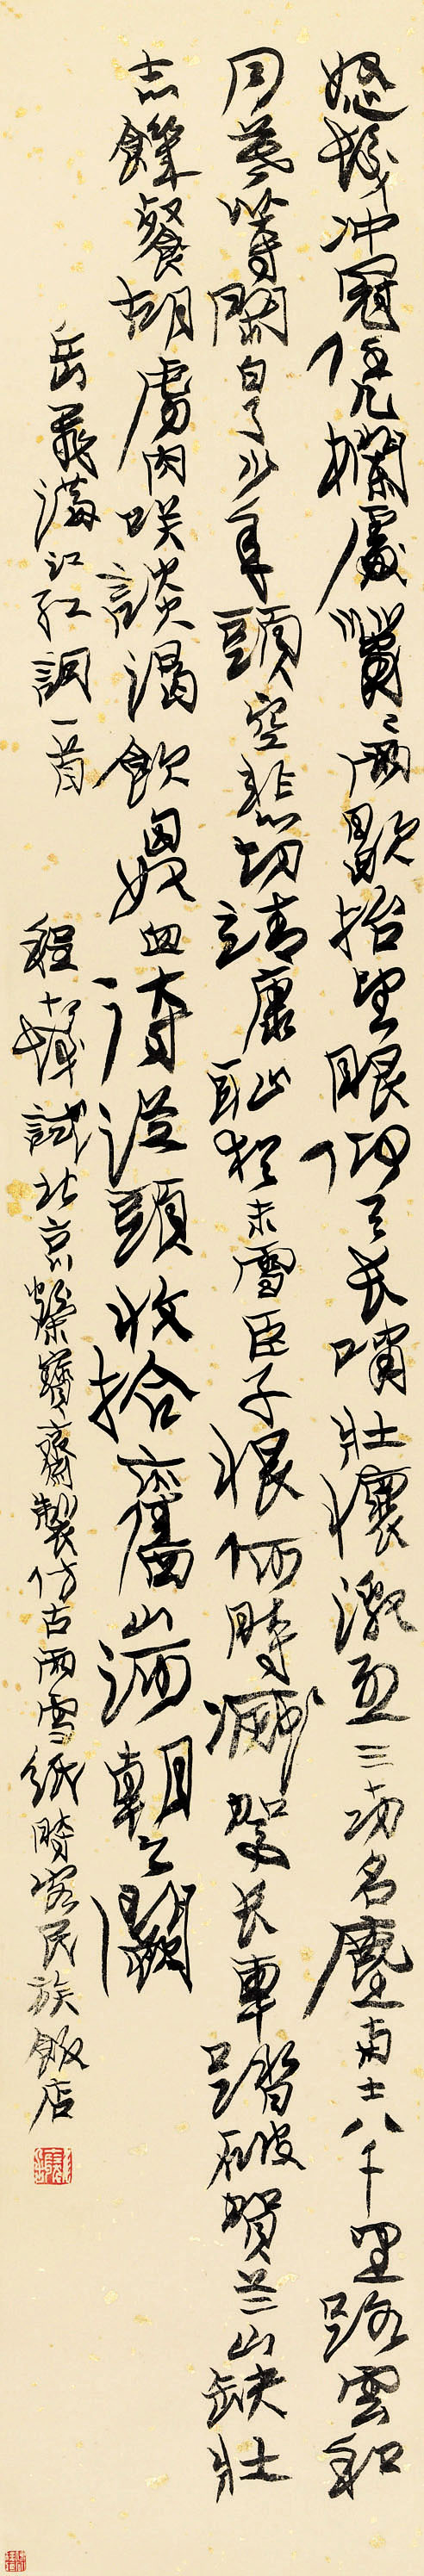 怒髮冲冠凭欄處瀟〻雨歇抬望眼仰天長嘯壯懷激烈三功名塵與土八千里路雲和
月莫等閒白了少年頭空悲切靖康恥猶未雪臣子恨何時滅駕長車踏破賀蘭山缺壯
志饑餐胡虜肉笑談渴飲匈奴血待從頭收拾舊山河朝天闕
岳飛滿江紅詞一首 程十髮試北京榮寶齋製仿古雨雪紙時客民族飯店